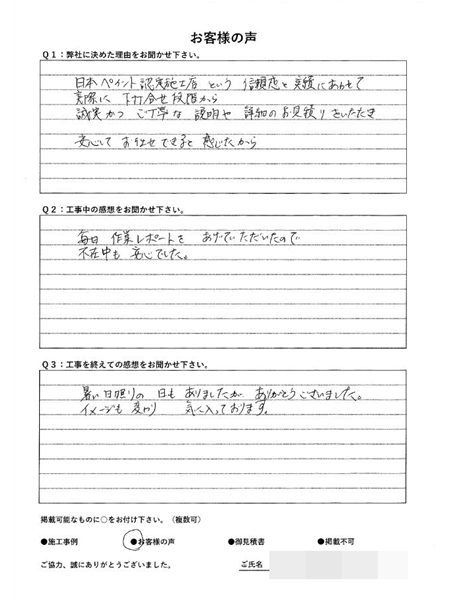 お客様の声
Q1：弊社に決めた理由をお聞かせ下さい。
日本ペイント認定施工店 という 信頼感と実績にあわせて
実際に 打合せ段階から
誠実かつ ご丁寧な 説明や 詳細のお見積りをいただき
安心して お任せできると 感じたから
Q2：工事中の感想をお聞かせ下さい。
毎日 作業レポートを あげていただいたので
不在中も 安心でした。
Q3：工事を終えての感想をお聞かせ下さい。
暑い日照りの 日も ありましたが ありがとうございました。
イメージも 変わり 気に入っております。
掲載可能なものに○をお付け下さい。（複数可）
●施工事例 ●お客様の声 ●御見積書 ●掲載不可
ご協力、誠にありがとうございました。 ご氏名